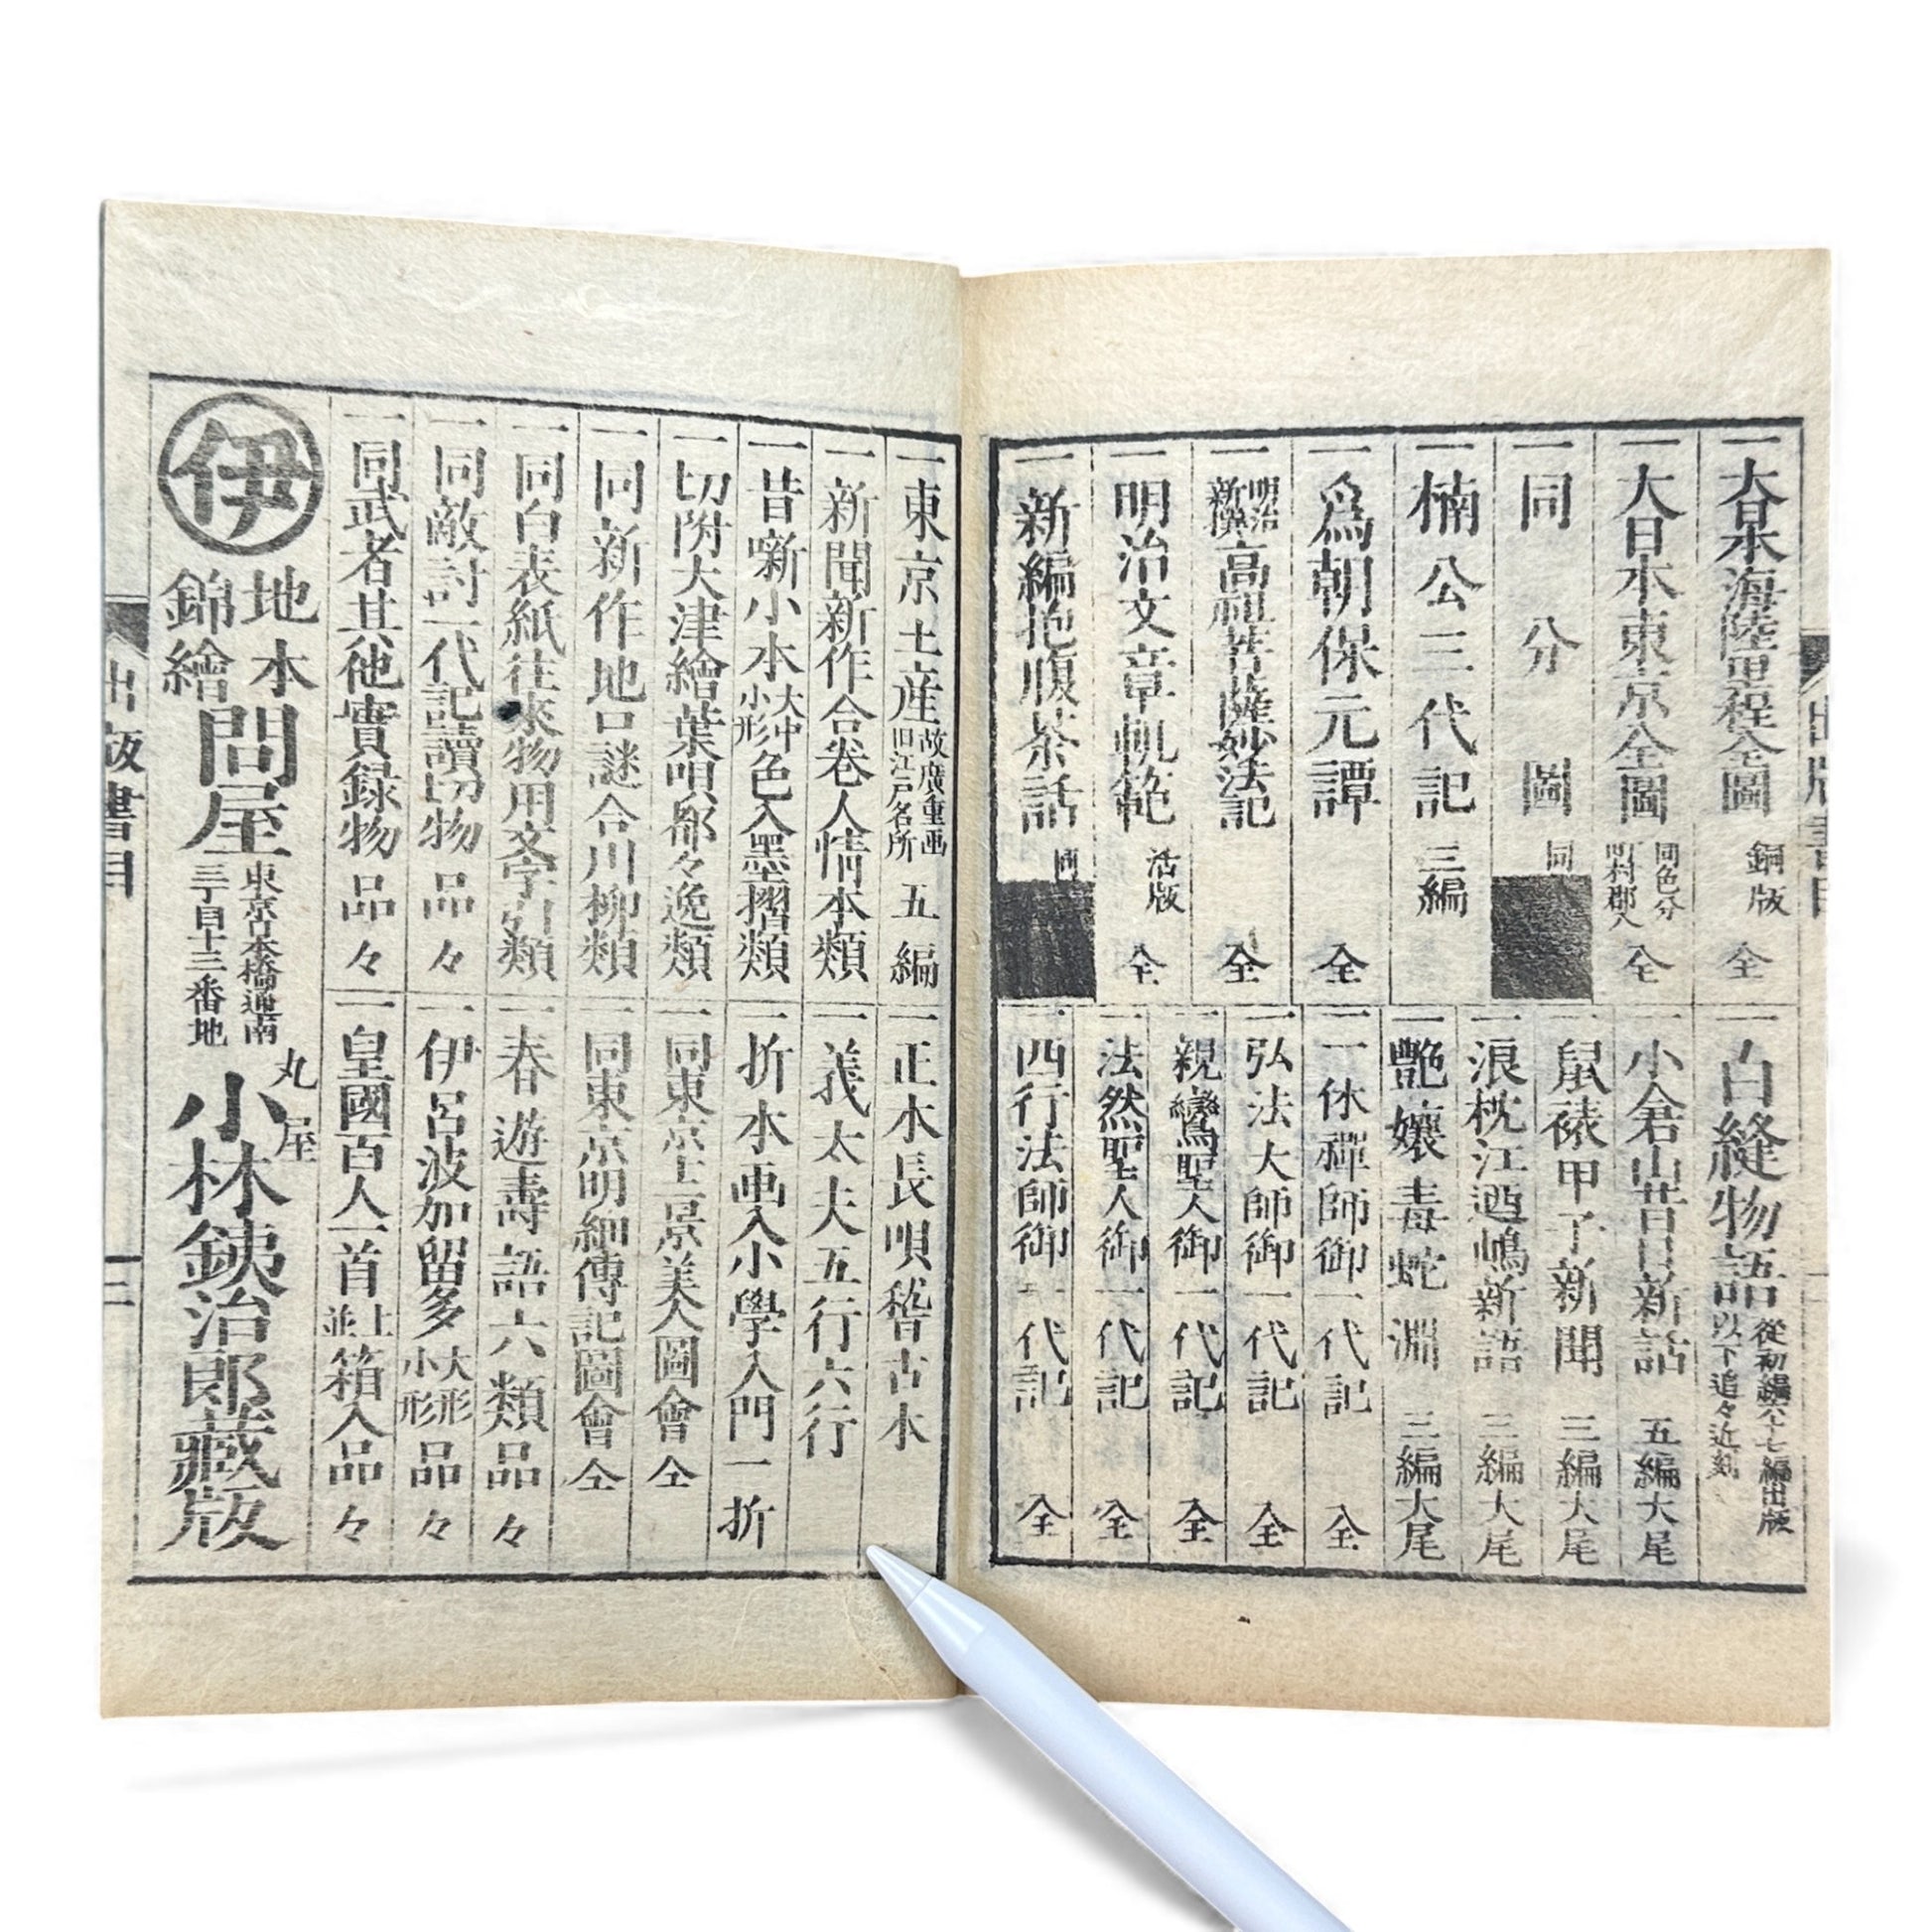 一大日本海陸里程全圖 銅版 全
一大日本東京全圖 同色分 町村郡入 全
一同分圖 同
一楠公三代記 三編
一爲朝保元譚 全
一明治新撰高祖菩薩妙法記 全
一明治文章軌範 活版 全
一新編抱腹茶話 同
一白縫物語 從初編六十七編出版 以下追々近刻
一小倉山昔日新話 五編大尾
一鼠裱甲子新聞 三編大尾
一浪枕江廼嶋新語 三編大尾
一艷孃毒蛇淵 三編大尾
一一休禪師御一代記 全
一弘法大師御一代記 全
一親鸞聖人御一代記 全
一法然聖人御一代記 全
一西行法師御一代記 全
一東京土産 故廣重画 旧江戸名所 五編
一新聞新作合卷人情本類
一昔噺小本 大中小形 色入墨摺類
一切附大津繪葉唄都々逸類
一同新作地口謎合川柳類
一同白表紙往來物用文字引類
一同敵討一代記讀切物品々
一同武者其他實録物品々
一正本長唄稽古本
一義太夫五行六行
一折本画入小學入門一折
一同東京土景美人圖會 仝
一同東京明細傳記圖會 仝
一春遊壽語六類品々
一伊呂波加留多 大形小形 品々
一皇國百人一首 上並 箱入品々
伊
地本
錦繪
問屋
東京日本橋通南
三丁目十三番地
丸屋
小林鉄治郎藏版
出版書目
三